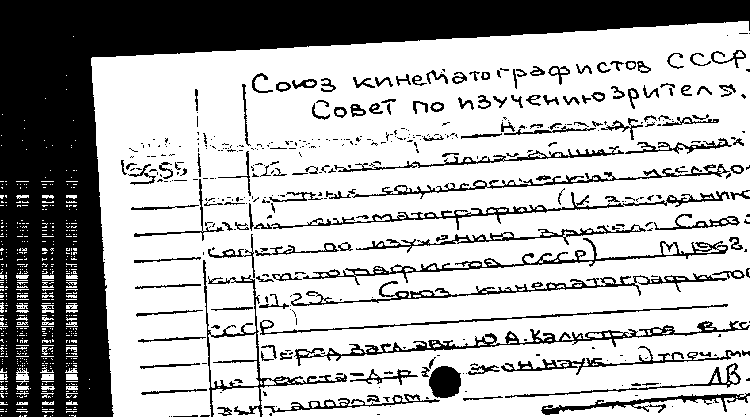 Союз кинематографистов СССР.
Совет по изучению зрителя.
Юрий Александрович.
Об опыте и ближайших задачах
конкретных социологических исследо-
ваний кинематографии (К заседанию
совета по изучению зрителя Союза
кинематографистов СССР) М, 1968.
29с. (Союз кинематографистов
СССР)
Перед загл. авт.: Ю.А.Калистратов в
це текста: д-р экон. наук. Отпеч.
аппаратом.